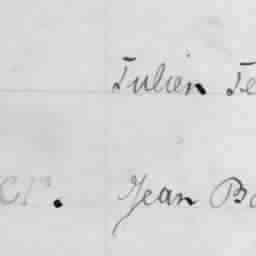 Julien Te
er. Jean Bo